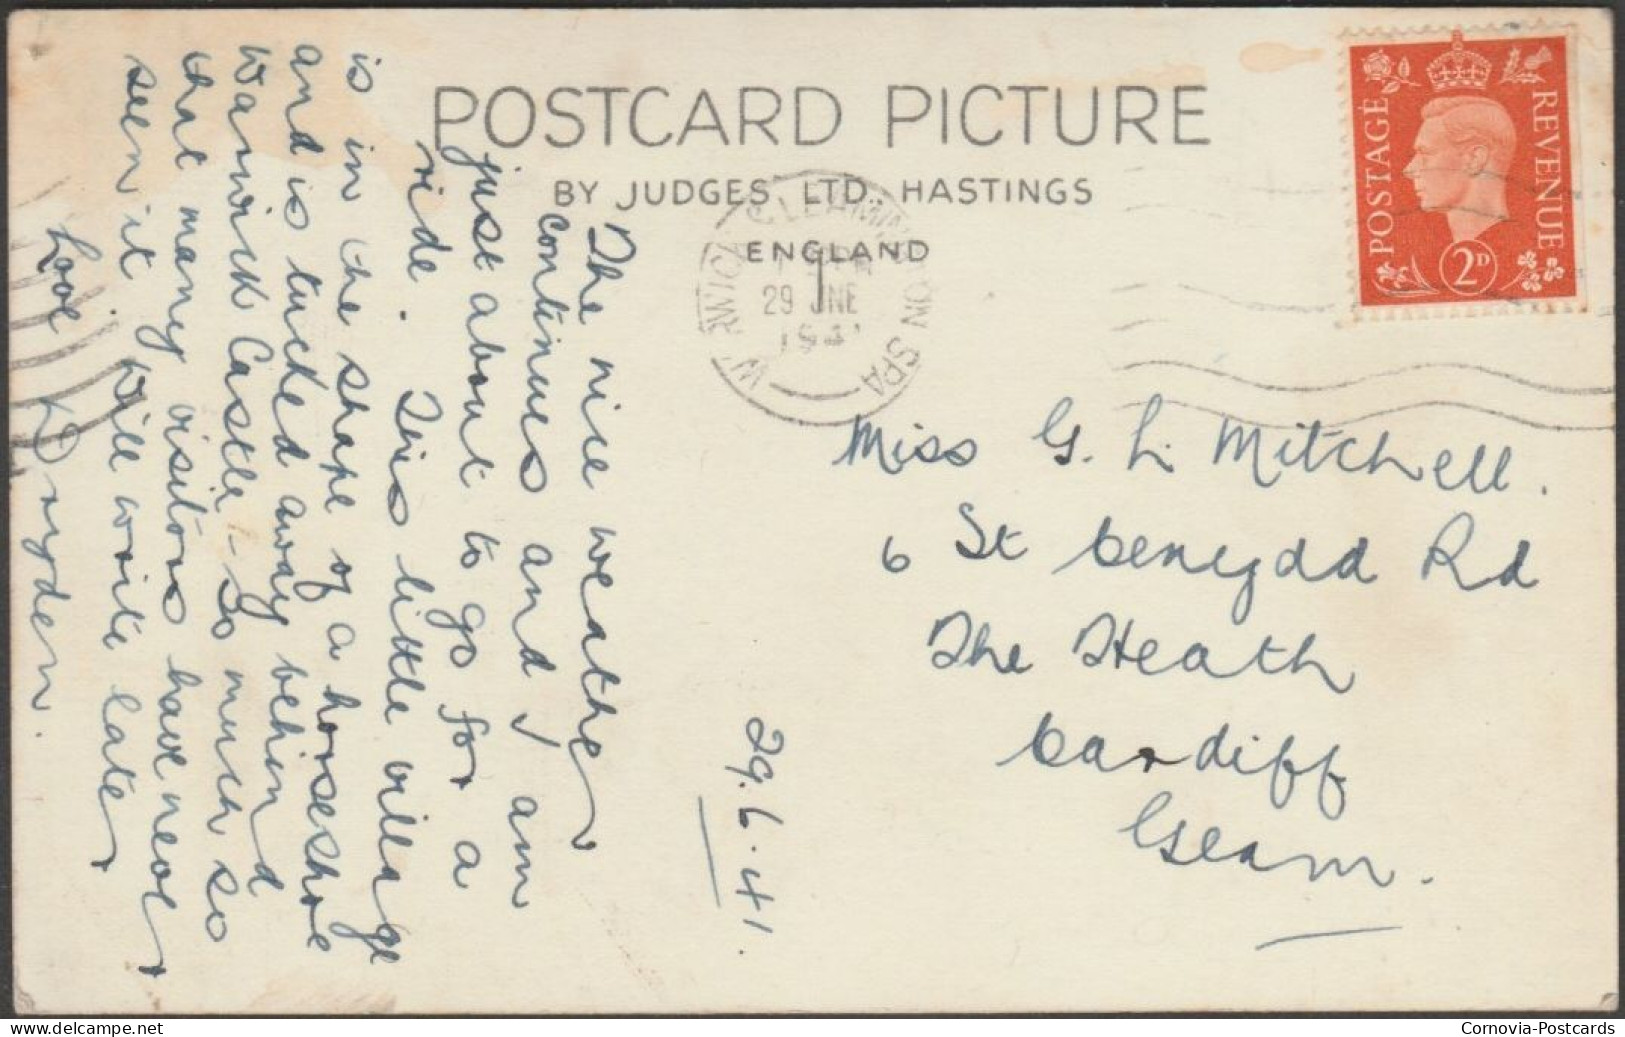 POSTCARD PICTURE
BY JUDGES LTD., HASTINGS
ENGLAND
POSTAGE
REVENUE
2D
WARWICK & LEAMINGTON SPA
29 JNE
1941
The nice weather
continues and I am
just about to go for a
ride. This little village
is in the shape of a horseshoe
and is tucked away behind
Warwick Castle - so much so
that many visitors have never
seen it. Will write later
Love
29.6.41.
Miss G. L. Mitchell.
6 St Cenydd Rd
The Heath
Cardiff
Glam.
Cornovia-Postcards